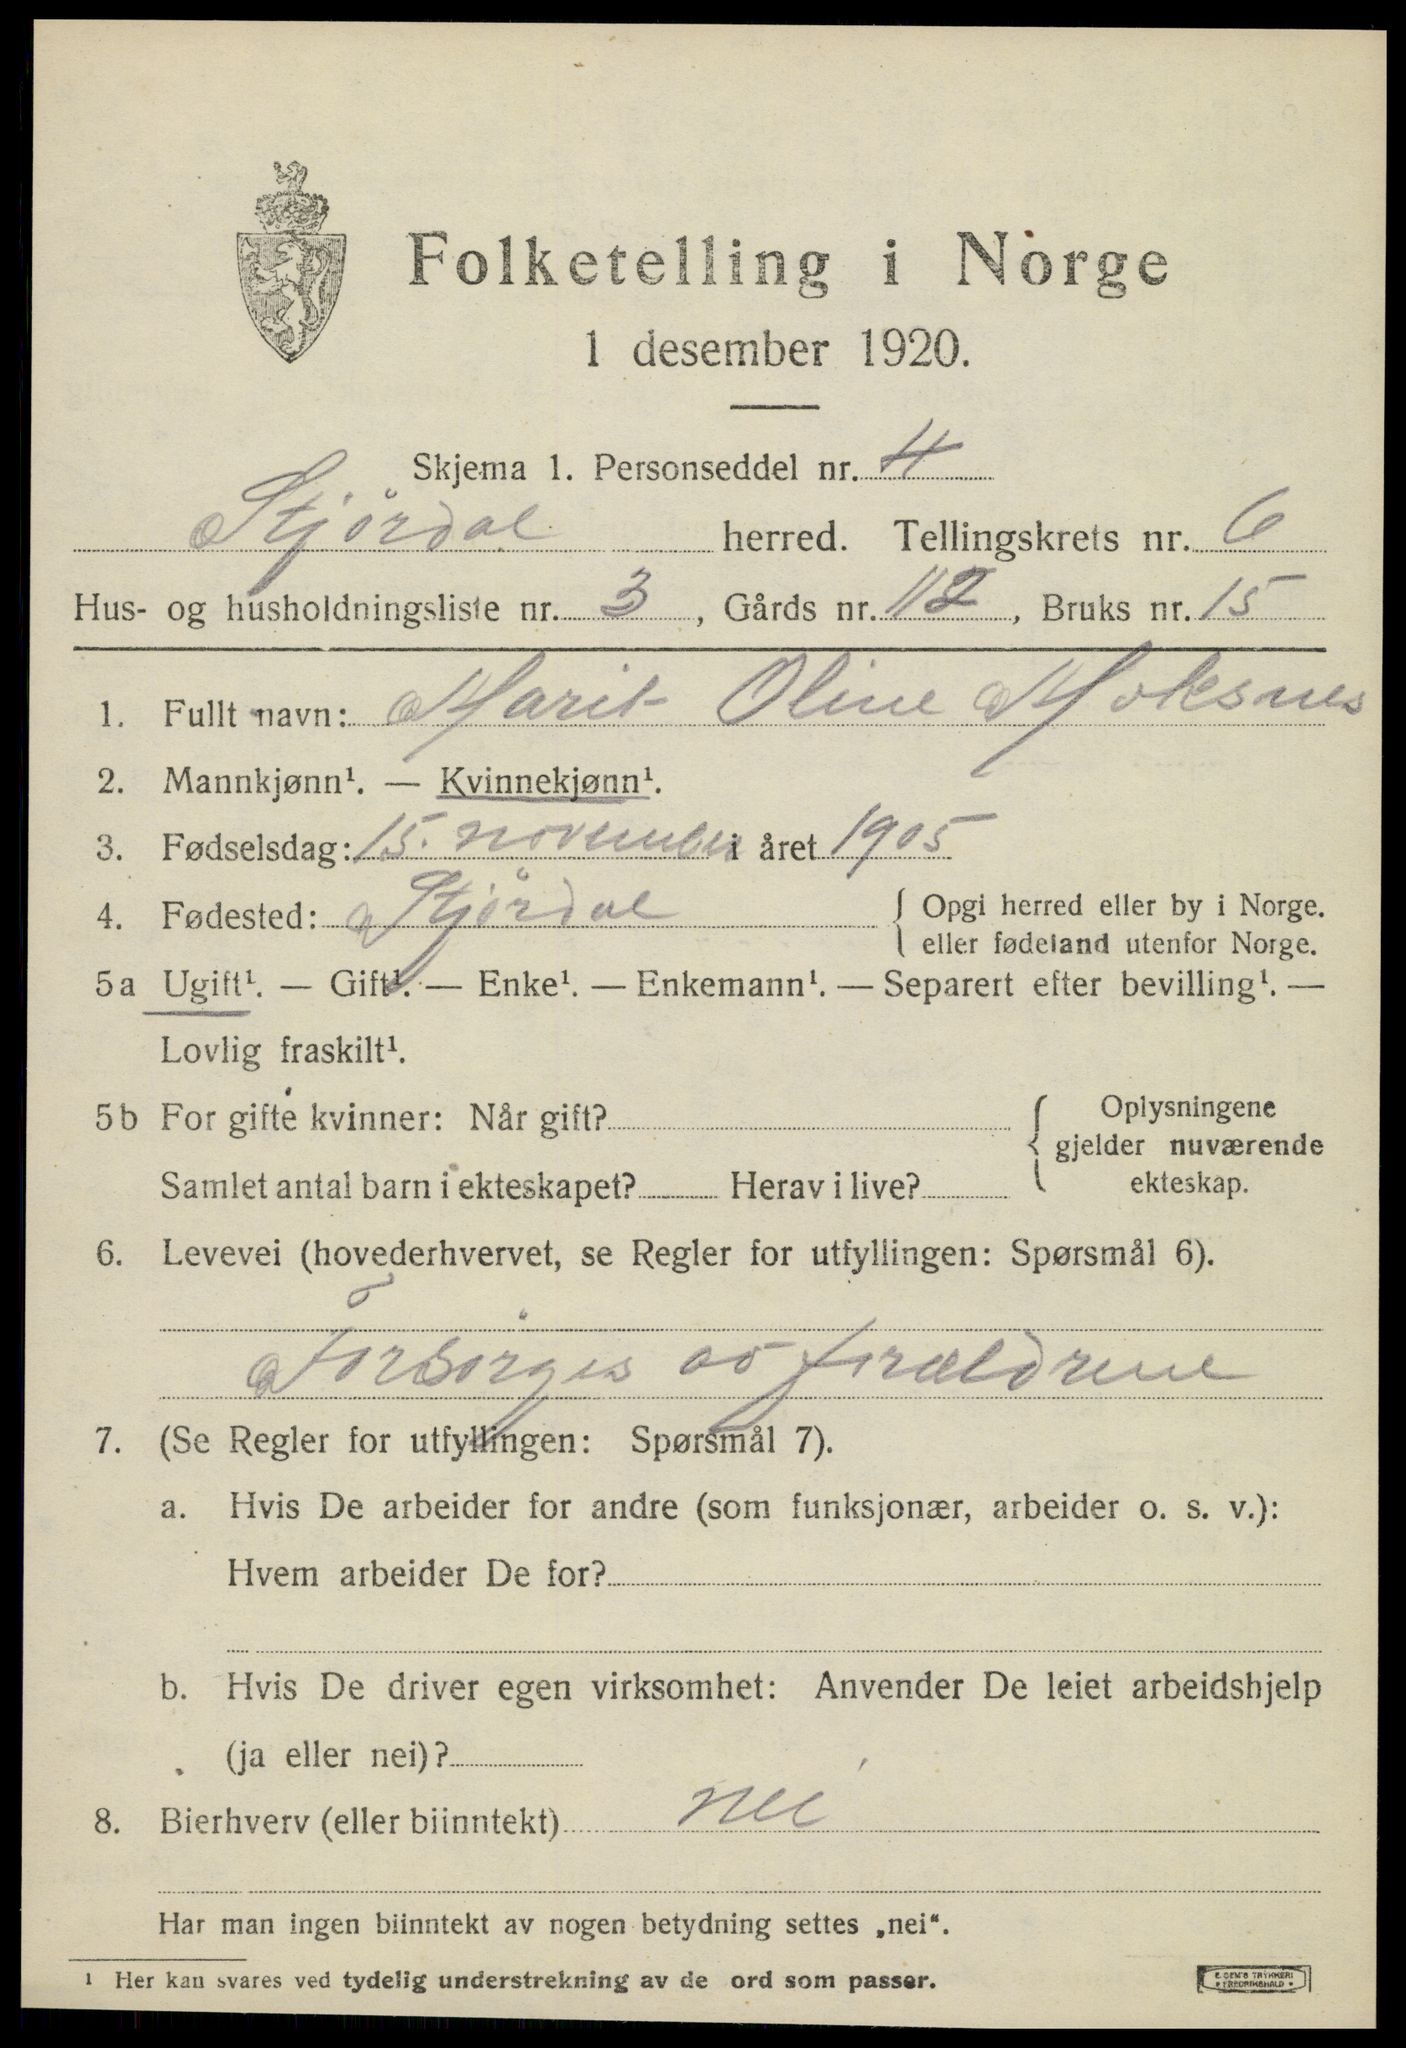 Folketelling i Norge
1 desember 1920.
Skjema 1. Personseddel nr. 4
Stjørdal herred. Tellingskrets nr. 6
Hus- og husholdningsliste nr. 3, Gårds nr. 112, Bruks nr. 15
1. Fullt navn: Marit Oline Moksnes
2. Mannkjønn¹. — Kvinnekjønn¹.
3. Fødselsdag: 15. november i året 1905
4. Fødested: Stjørdal { Opgi herred eller by i Norge.
eller fødeland utenfor Norge.
5a Ugift¹. — Gift¹. — Enke¹. — Enkemann¹. — Separert efter bevilling¹. —
Lovlig fraskilt¹.
5b For gifte kvinner: Når gift? { Oplysningene
gjelder nuværende
Samlet antal barn i ekteskapet? Herav i live? ekteskap.
6. Levevei (hovederhvervet, se Regler for utfyllingen: Spørsmål 6).
Forsørges av forældrene
7. (Se Regler for utfyllingen: Spørsmål 7).
a. Hvis De arbeider for andre (som funksjonær, arbeider o. s. v.):
Hvem arbeider De for?
b. Hvis De driver egen virksomhet: Anvender De leiet arbeidshjelp
(ja eller nei)?
8. Bierhverv (eller biinntekt) nei
Har man ingen biinntekt av nogen betydning settes „nei“.
¹ Her kan svares ved tydelig understrekning av de ord som passer.
E. SEM'S TRYKKERI
• FREDRIKSHALD •